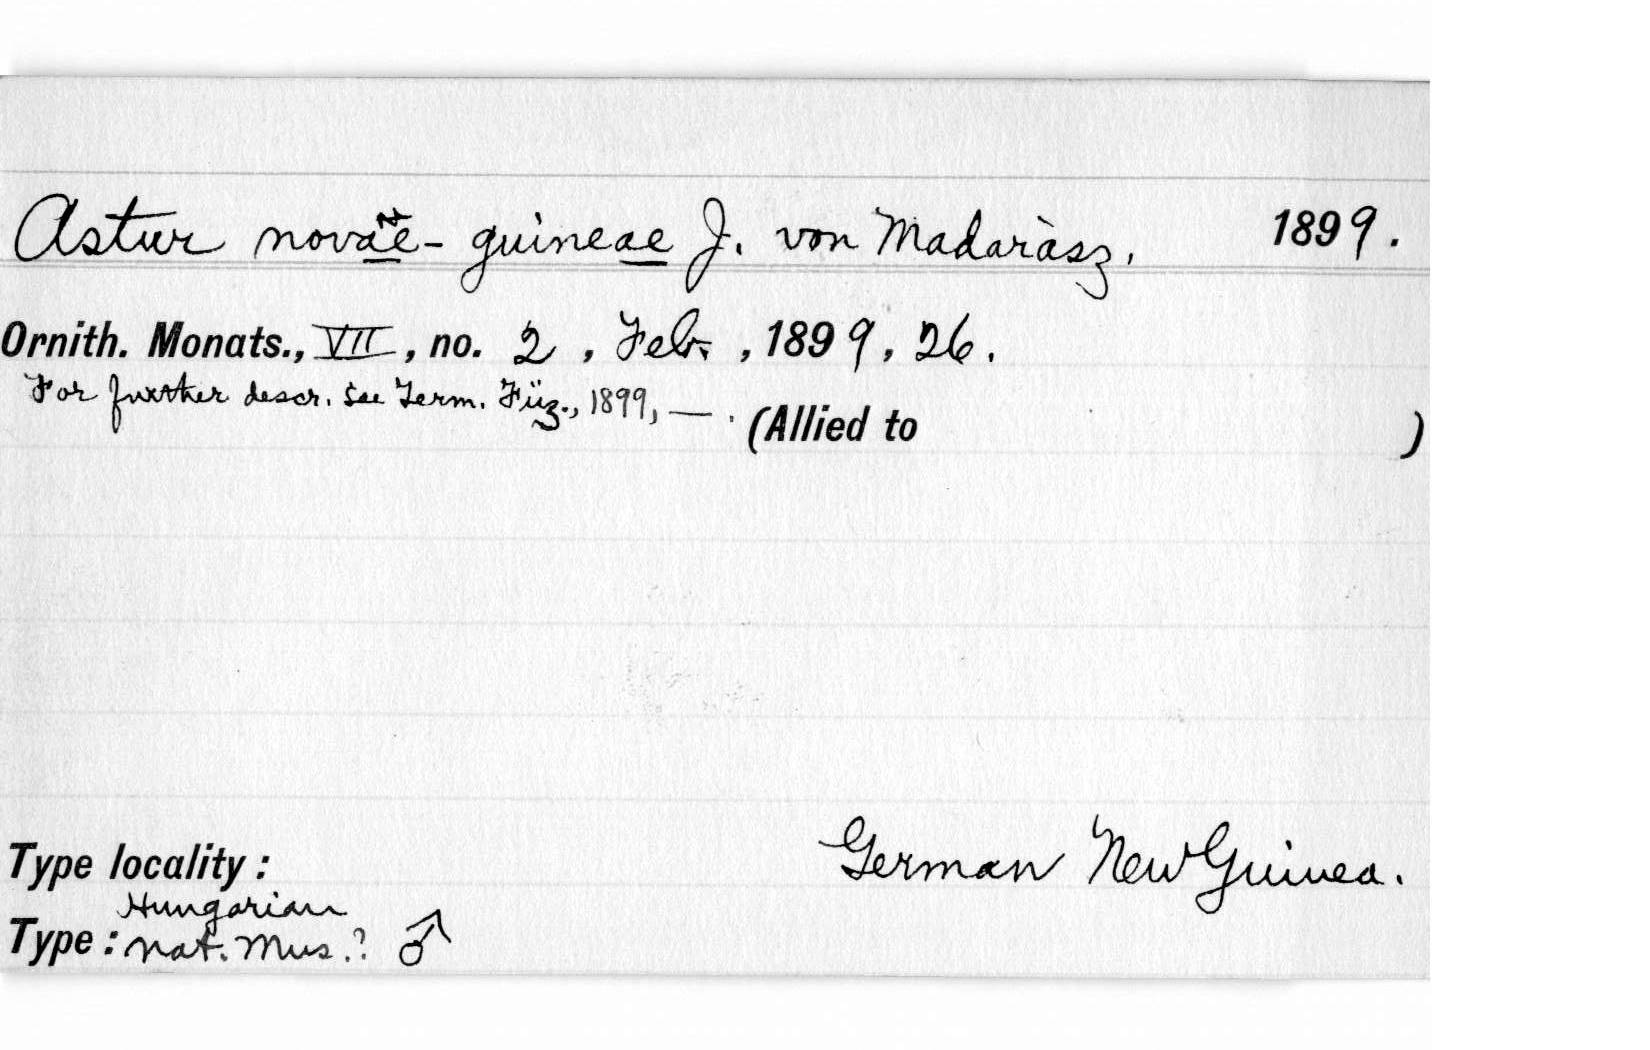 Astur novae-guineae J. von Madaràsz. 1899.
Ornith. Monats., VII, no. 2, Feb., 1899, 26.
For further descr. see Term. Füz., 1899, — .
(Allied to )
Type locality: German New Guinea.
Hungarian
Type: Nat. Mus.? ♂